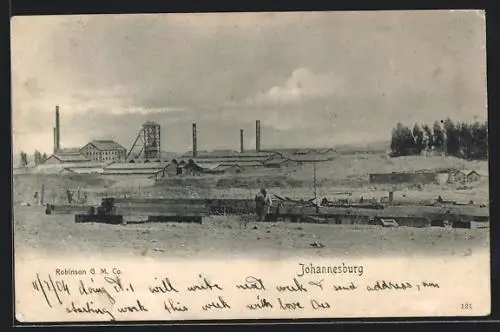 Robinson G. M. Co.
Johannesburg
4/7/04 doing it. will write next week & send address, am
starting work this week with love
121